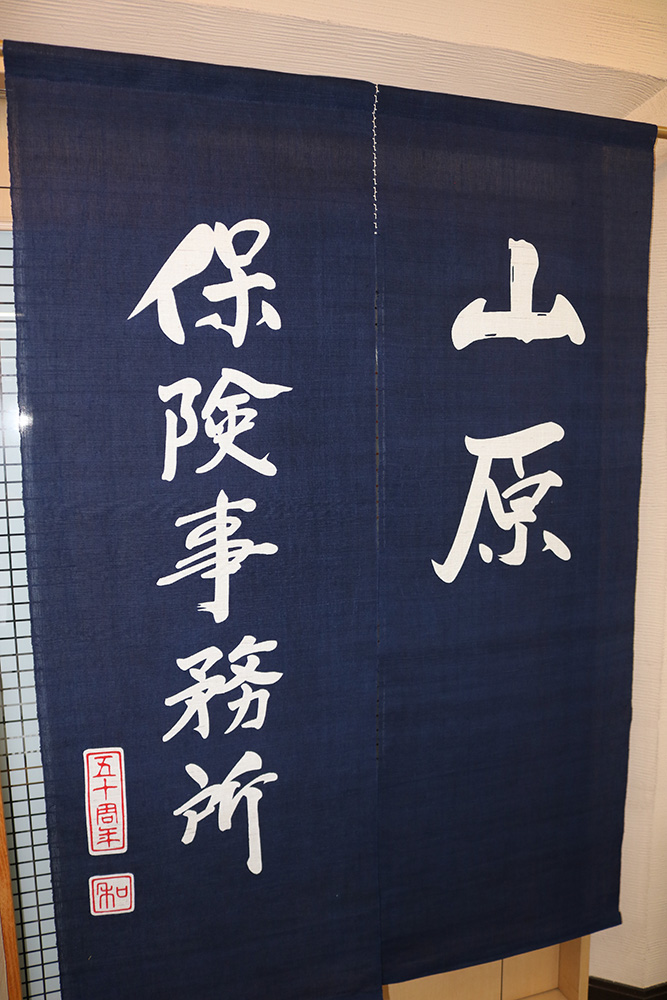 山原
保険事務所
五十周年
和